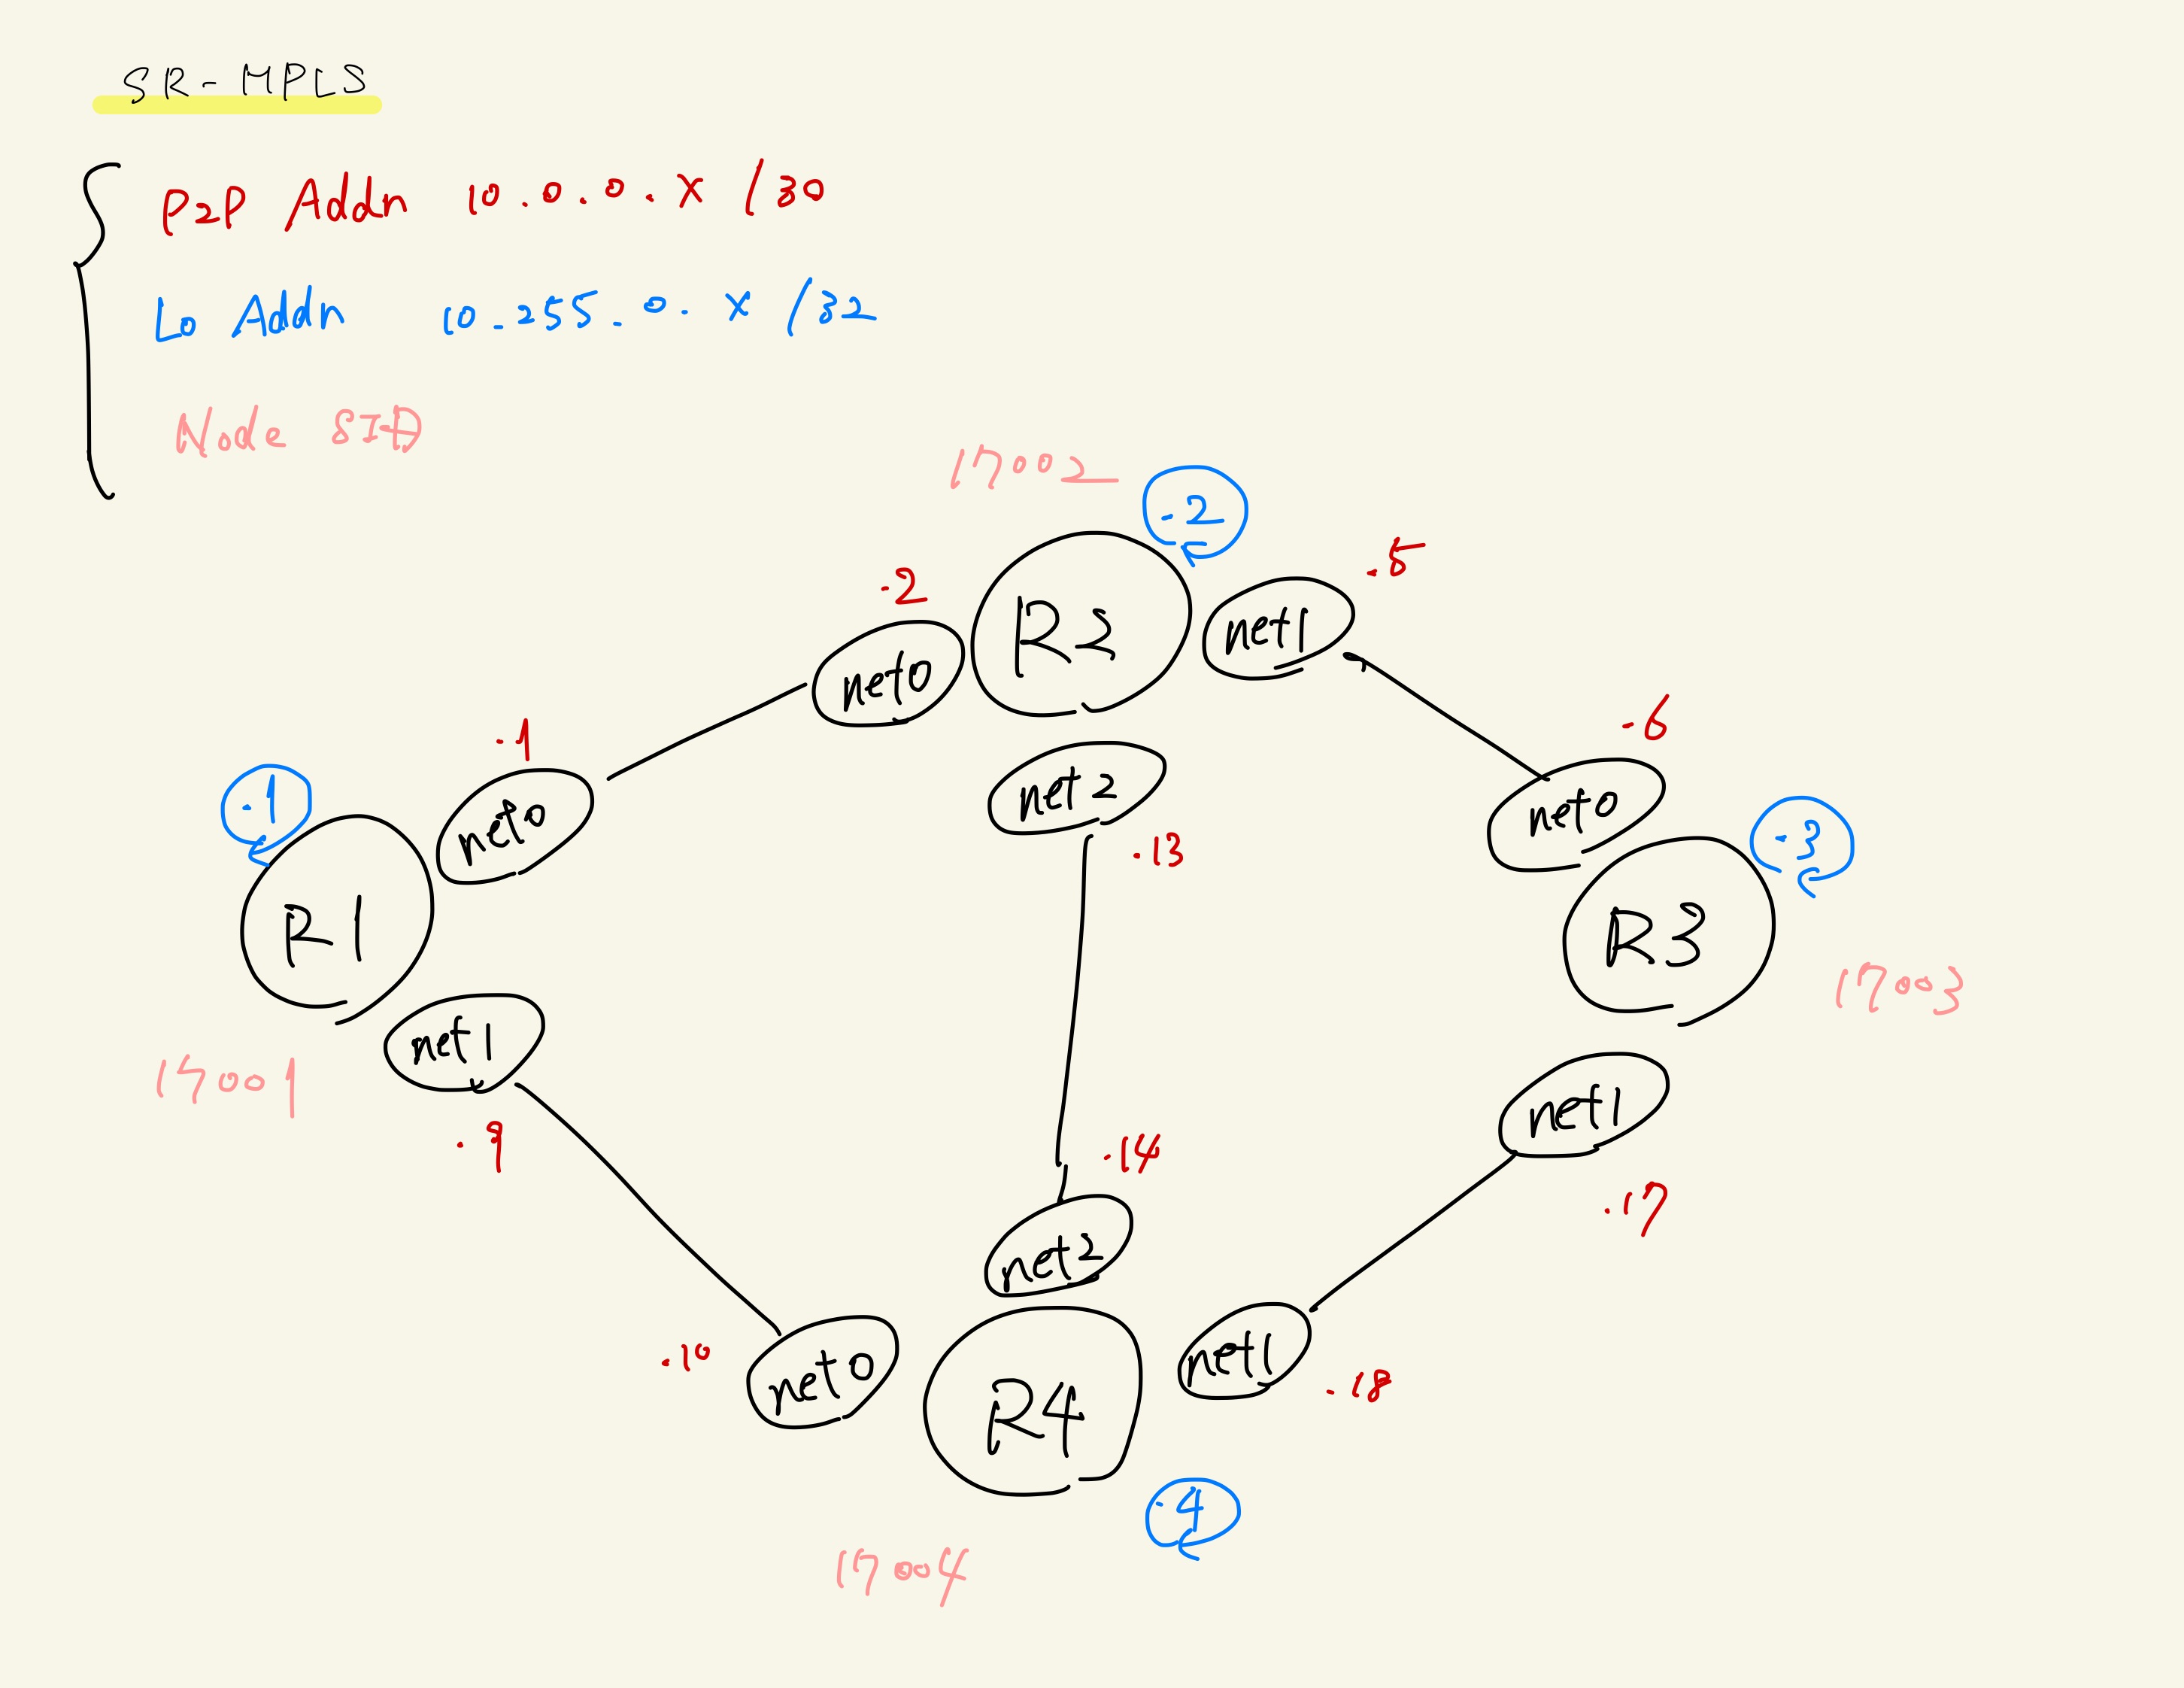 SR-MPLS
P2P Addr 10.0.0.X /30
Lo Addr 10.255.0.X /32
Node SID
17002
.2
.2
R2
net1
.5
net0
.1
net0
net2
.13
.6
net0
.1
R1
.3
R3
17003
net1
17001
.9
net1
.17
.14
net2
.10
net0
R4
net1
.18
.4
17004